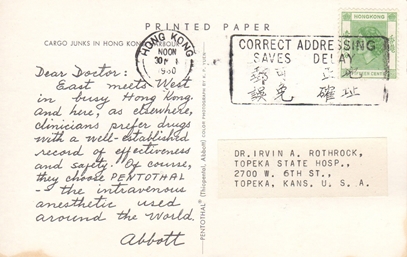 PRINTED PAPER
CARGO JUNKS IN HONG KONG HARBOUR
HONG KONG
NOON
CORRECT ADDRESSING
SAVES DELAY
誤 免 確 址
HONGKONG
Dear Doctor:
East meets West
in busy Hong Kong.
and here, as elsewhere,
clinicians prefer drugs
with a well-established
record of effectiveness
and safety. Of course,
they choose PENTOTHAL
- the intravenous
anesthetic used
around the world.
Abbott
PENTOTHAL® (Thiopental, Abbott) COLOR PHOTOGRAPH BY
DR. IRVIN A. ROTHROCK,
TOPEKA STATE HOSP.,
2700 W. 6TH ST.,
TOPEKA, KANS. U. S. A.